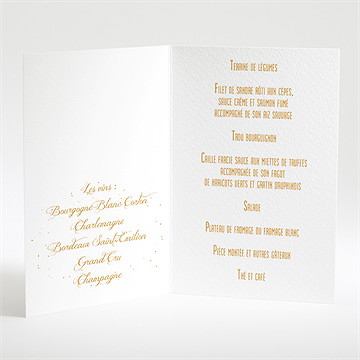 Les vins :
Bourgogne Blanc Corton
Charlemagne
Bordeaux Saint-Emilion
Grand Cru
Champagne
Terrine de légumes
Filet de sandre rôti aux cèpes,
sauce crème et saumon fumé
accompagné de son riz sauvage
Trou bourguignon
Caille farcie sauce aux miettes de truffes
accompagnée de son fagot
de haricots verts et gratin dauphinois
Salade
Plateau de fromage ou fromage blanc
Pièce montée et autres gâteaux
Thé et café